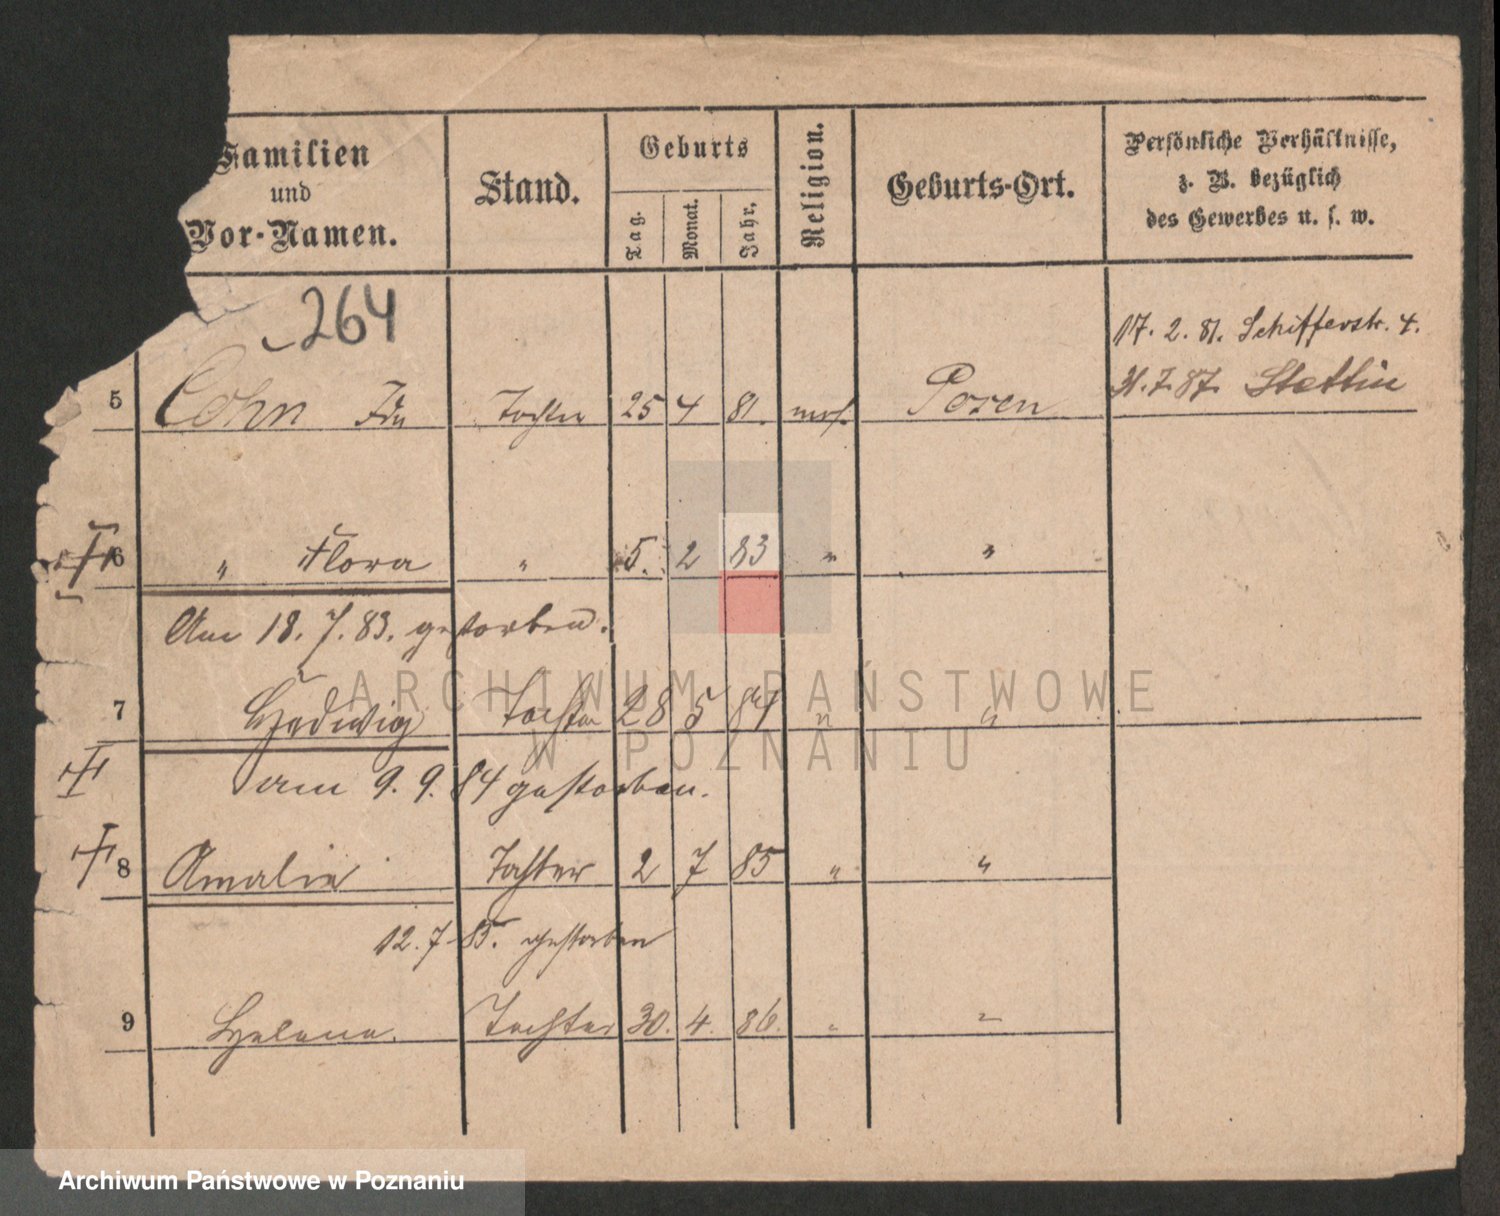 Familien
und
Vor-Namen.
Stand.
Geburts
Tag.
Monat.
Jahr.
Religion.
Geburts-Ort.
Persönliche Verhältnisse,
z. B. bezüglich
des Gewerbes u. s. w.
264
17. 2. 81. Schifferstr. 4.
31.7.87. Stettin
5 Cohn Ida Tochter 25 4 81. mos. Posen
6 " Flora " 5. 2 83 " "
Am 18. 7. 83. gestorben.
7 Hedwig Tochter 28 5 84 " "
am 9. 9. 84 gestorben.
8 Amalie Tochter 2 7 85 " "
12. 7. 85. gestorben
9 Helene. Tochter 30. 4. 86. " "
ARCHIWUM PAŃSTWOWE
W POZNANIU
Archiwum Państwowe w Poznaniu